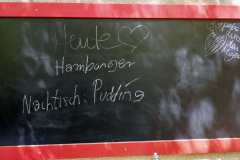 Heute
Hamburger
Nachtisch: Pudding